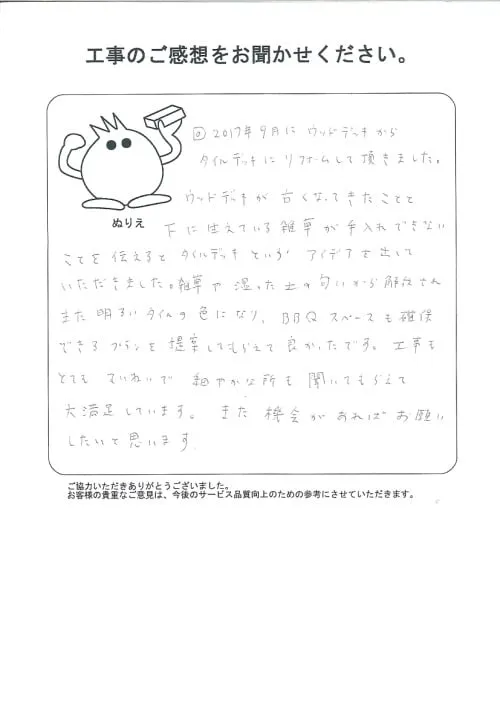 工事のご感想をお聞かせください。
ぬりえ
◎2017年9月に ウッドデッキから
タイルデッキに リフォームして頂きました。
ウッドデッキが 古くなってきたことと
下に生えている雑草が手入れできない
ことを伝えると タイルデッキという アイデアを出して
いただきました。雑草や 湿った土の匂いから解放され
また 明るいタイルの色になり、BBQ スペースも確保
できるプランを提案してもらえて良かったです。工事も
とても ていねいで 細やかな所も 聞いてもらえて
大満足しています。また 機会があれば お願い
したいと思います
ご協力いただきありがとうございました。
お客様の貴重なご意見は、今後のサービス品質向上のための参考にさせていただきます。